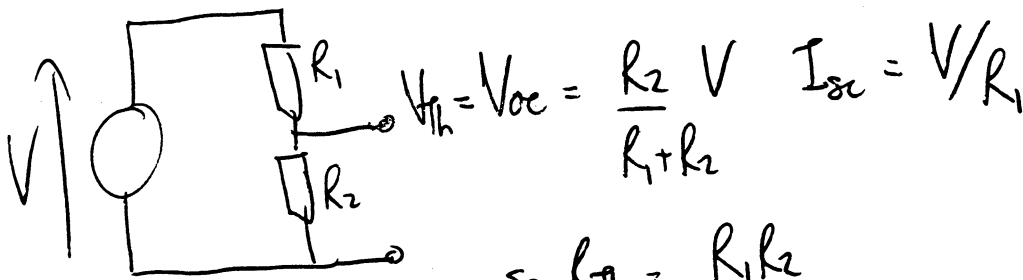 V
R1
R2
Vth = Voc = R2/(R1+R2) V   Isc = V/R1
so Rth = R1R2